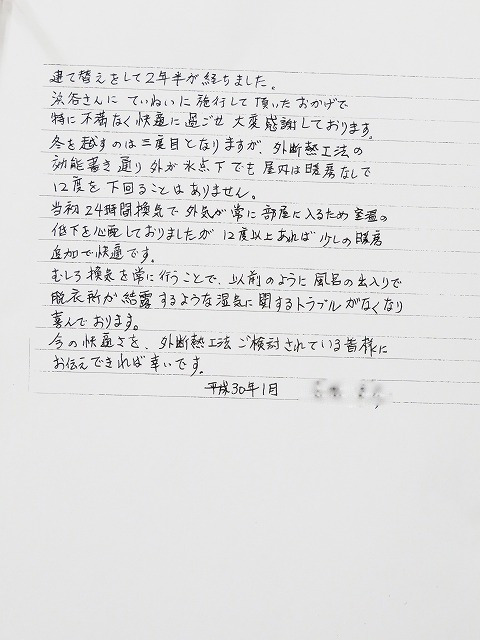 建て替えをして2年半が経ちました。
渋谷さんにていねいに施行して頂いたおかげで
特に不満なく快適に過ごせ大変感謝しております。
冬を越すのは三度目となりますが、外断熱工法の
効能書き通り外が氷点下でも屋内は暖房なしで
12度を下回ることはありません。
当初24時間換気で外気が常に部屋に入るため室温の
低下を心配しておりましたが12度以上あれば少しの暖房
追加で快適です。
むしろ換気を常に行うことで、以前のように風呂の出入りで
脱衣所が結露するような湿気に関するトラブルがなくなり
喜んでおります。
今の快適さを、外断熱工法ご検討されている皆様に
お伝えできれば幸いです。
平成30年1月